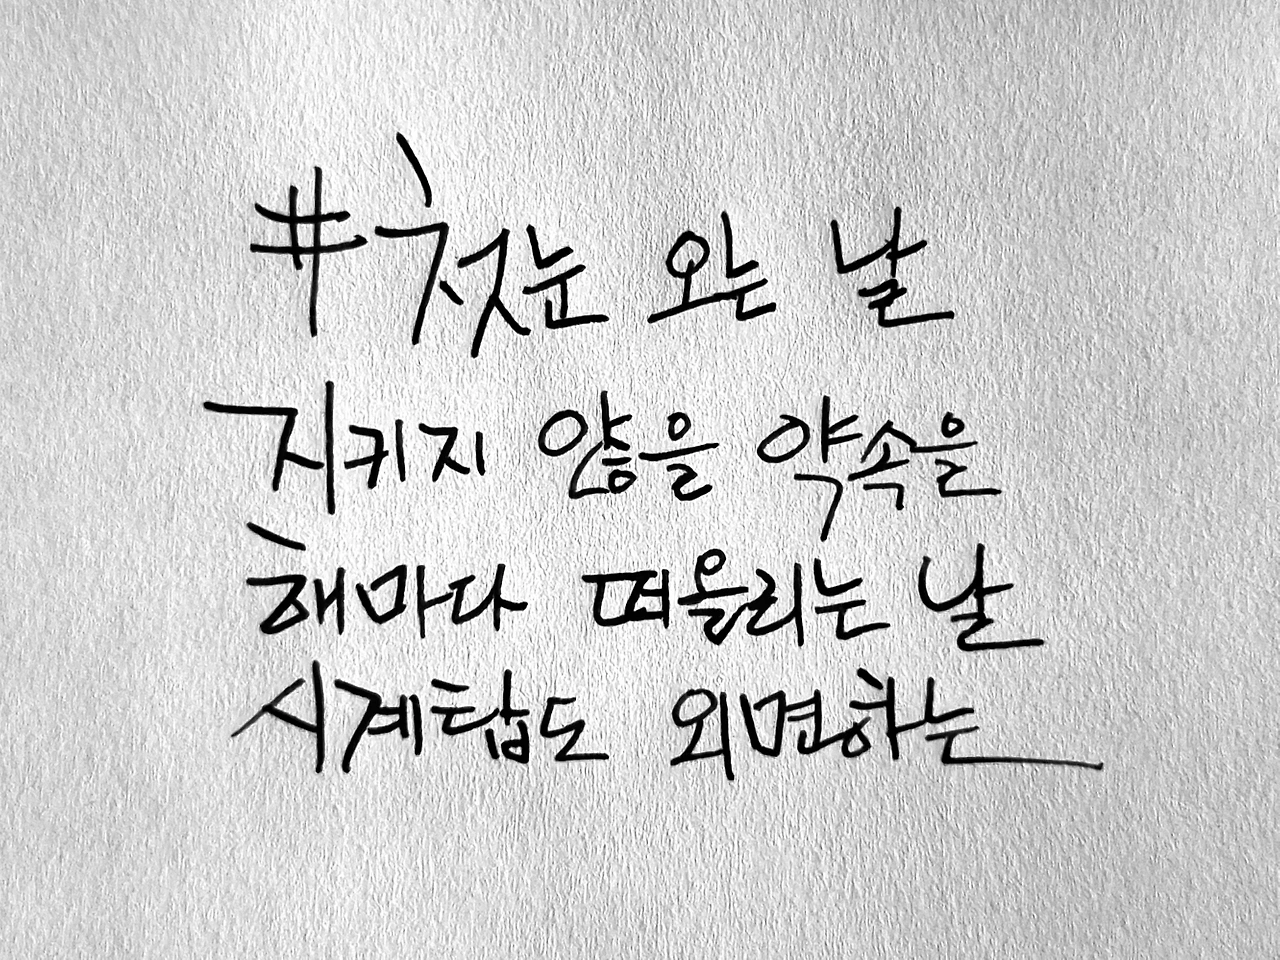 #첫눈 오는 날
지키지 않을 약속을
해마다 떠올리는 날
시계탑도 외면하는